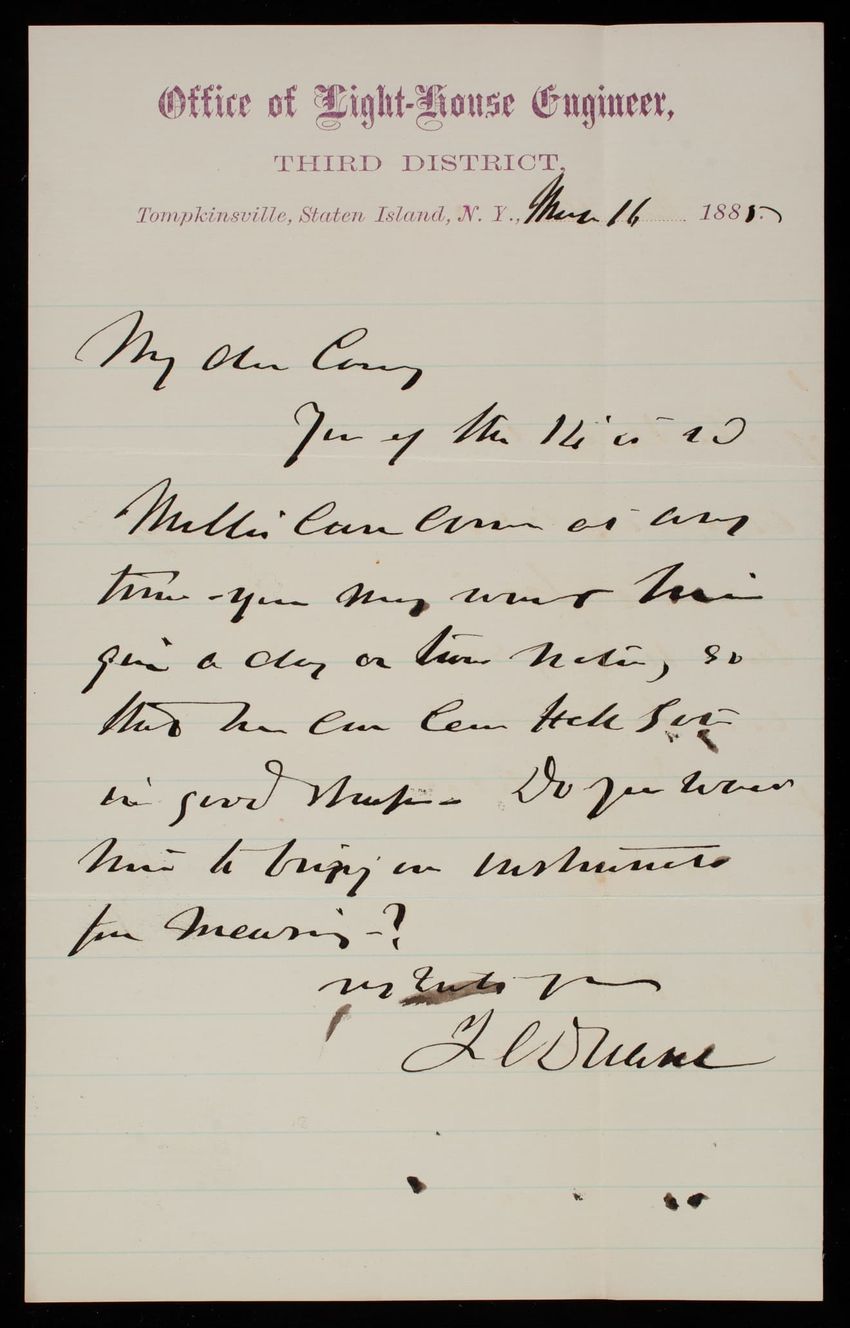 Office of Light-House Engineer,
THIRD DISTRICT,
Tompkinsville, Staten Island, N. Y., Mar 16 1885.
My dear Casey
Yours of the 14 is recd
Millis can come at any
time - you may want him
give a day or two notice, so
that he can leave
in good shape - Do you want
him to bring in instruments
for measuring - ?
yours
J C Duane